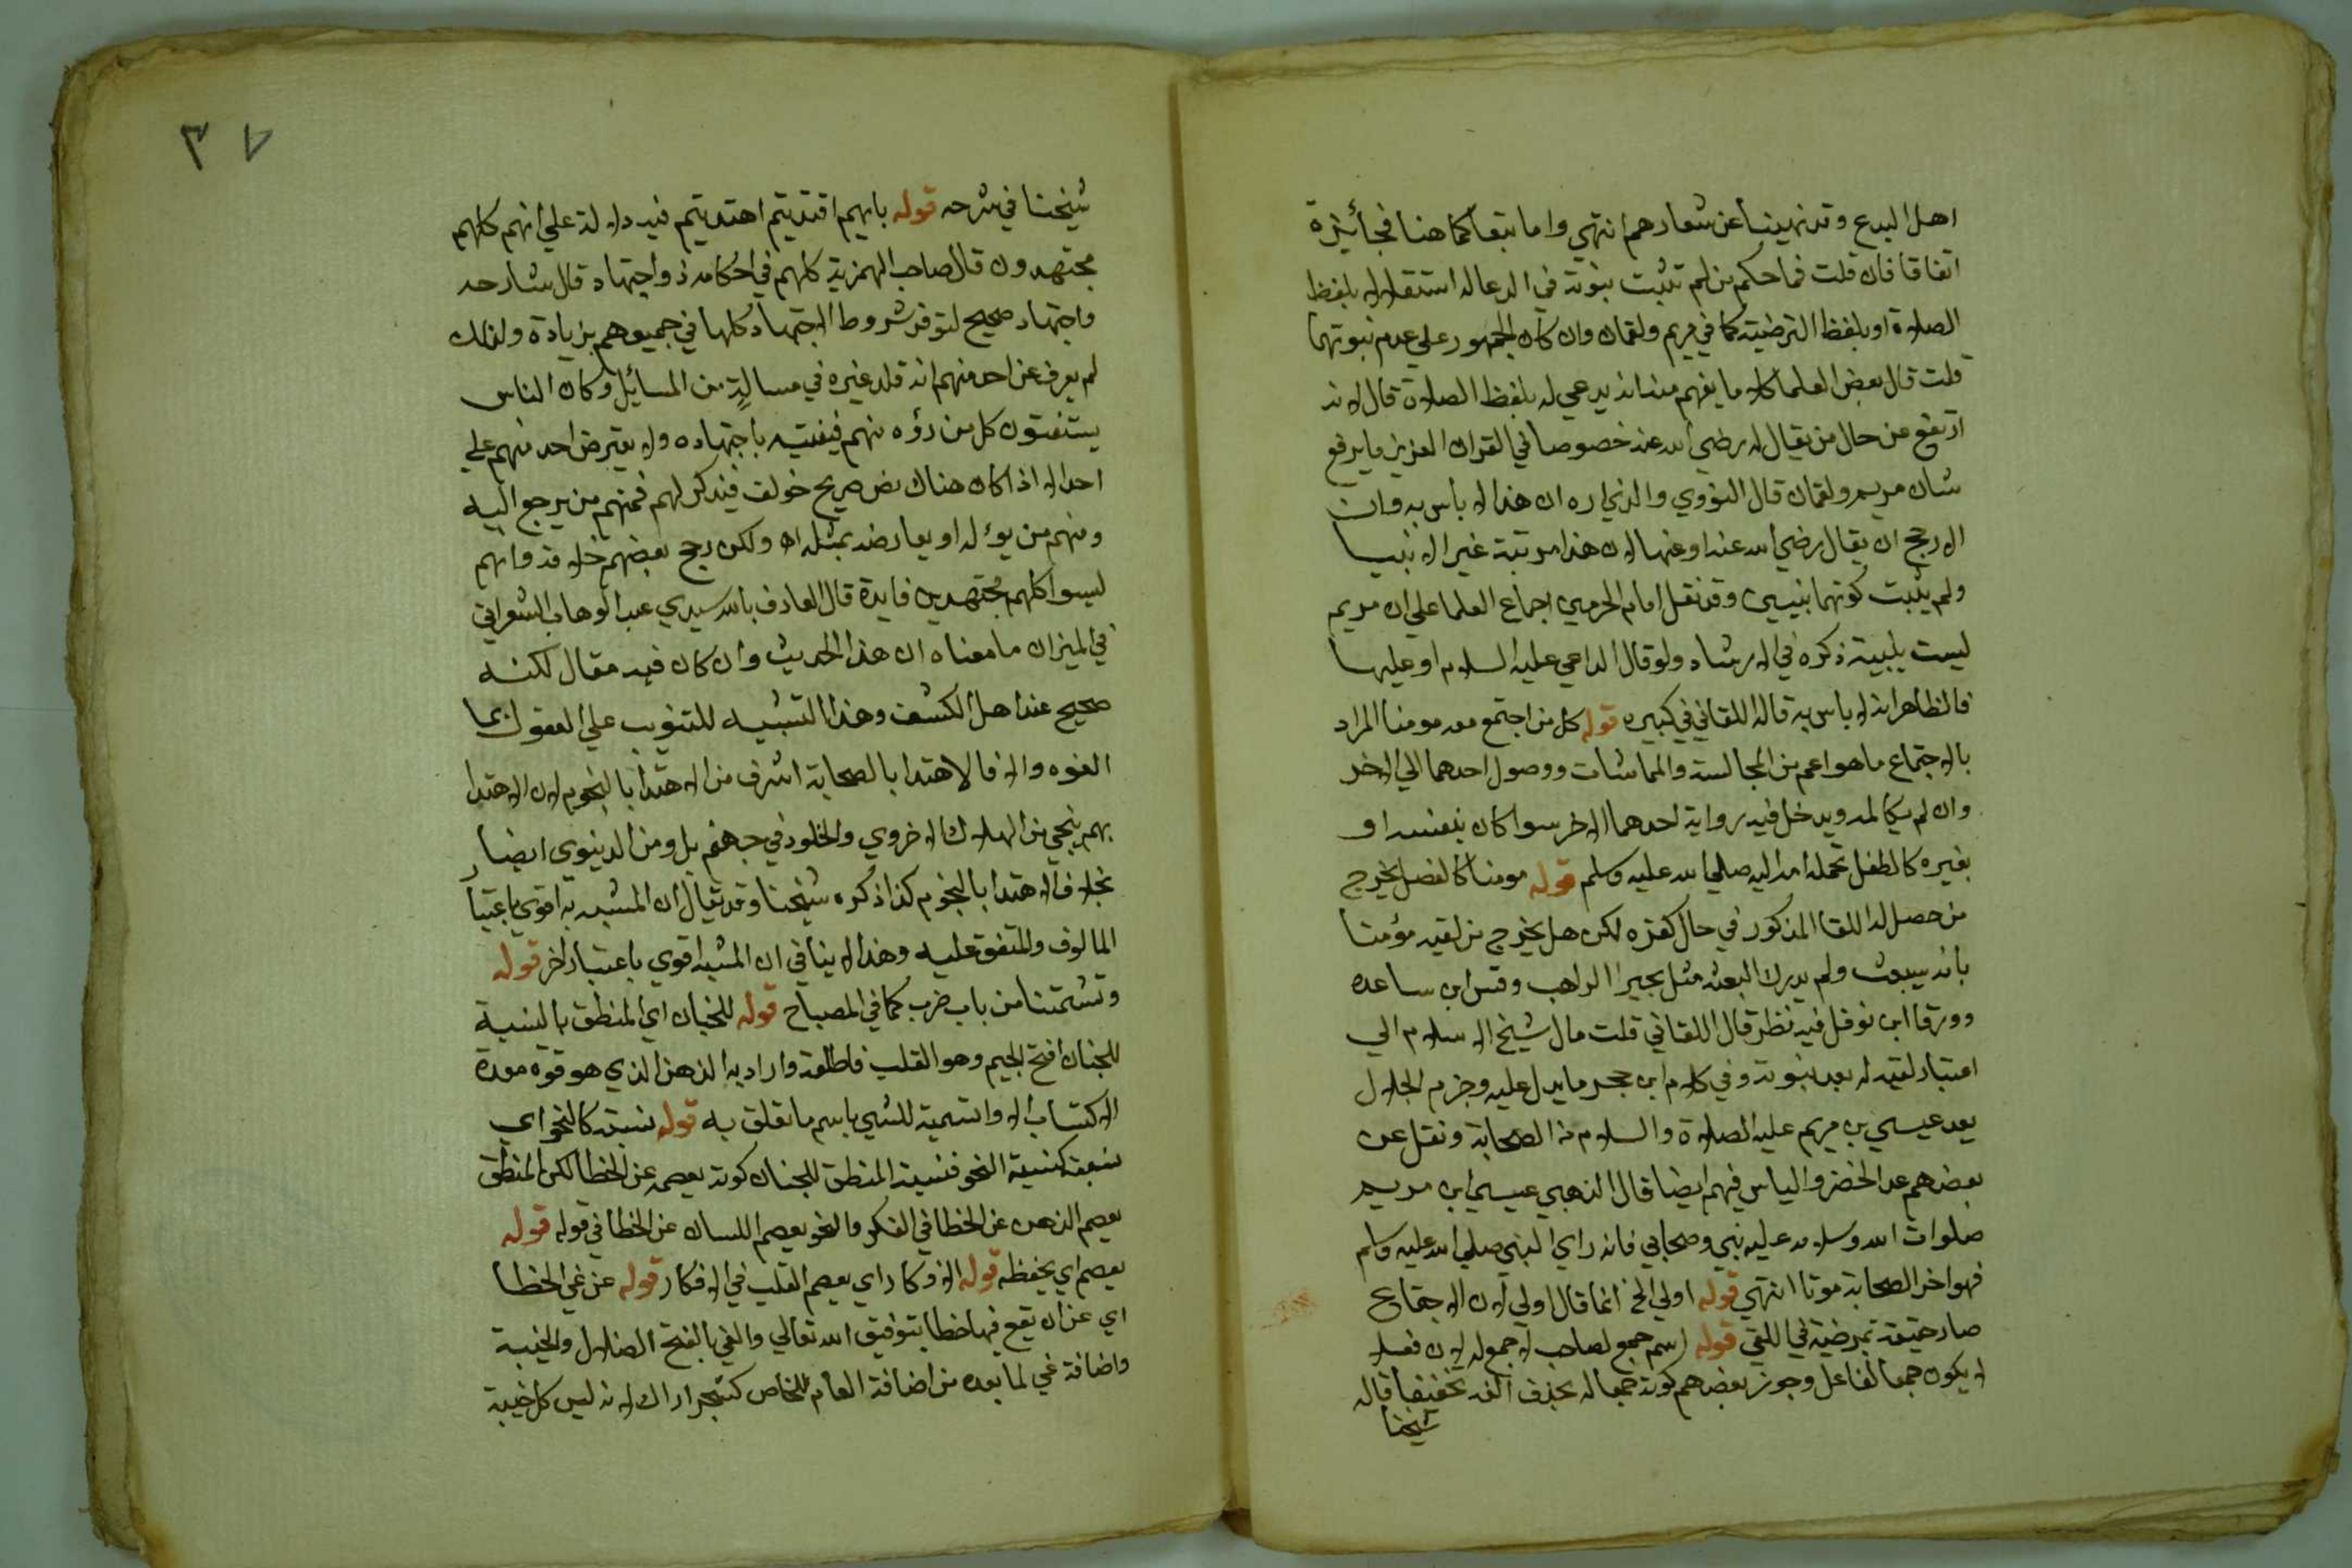 اهل البدع وقد نهينا عن شعارهم انتهي واما تبعا كما هنا فجائزة
اتفاقا فان قلت فما حكم من لم تثبت نبوته في الدعا له استقلالا بلفظ
الصلاة او بلفظ الترضية كما في مريم ولقمان وان كان الجمهور علي عدم نبوتهما
قلت قال بعض العلما كلاما يفهم منه انه يدعي له بلفظ الصلاة قال لانه
ارتفع عن حال من يقال له رضي الله عنه خصوصا في القران العزيز ما يرفع
شان مريم ولقمان قال النووي والذي اراه ان هذا لا باس به وان
الارجح ان يقال رضي الله عنه او عنها لان هذا مرتبة غير الانبيا
ولم يثبت كونهما نبيين وقد نقل امام الحرمين اجماع العلما علي ان مريم
ليست بنبية ذكره في الارشاد ولو قال الداعي عليه السلام او عليها
فالظاهر انه لا باس به قاله اللقاني في كبيره قوله كل من اجتمع معه مومنا المراد
بالاجتماع ما هو اعم من المجالسة والمماشات ووصول احدهما الي الاخر
وان لم يكالمه ويدخل فيه رواية احدهما الاخر سوا كان بنفسه او
بغيره كالطفل تحمله امه اليه صلي الله عليه وسلم قوله مومنا كالفصل يخرج
من حصل له اللقا المذكور في حال كفره لكن هل يخرج من لقيه مؤمنا
بانه سيبعث ولم يدرك البعثة مثل بحيرا الراهب وقس ابن ساعده
وورقا ابن نوفل فيه نظر قال اللقاني قلت مال شيخ الاسلام الي
اعتبار لقيه له بعد نبوته وفي كلام ابن حجر ما يدل عليه وجزم الجلال
بعد عيسي بن مريم عليه الصلاة والسلام من الصحابة ونقل عن
بعضهم عد الخضر والياس فيهم ايضا قال الذهبي عيسي ابن مريم
صلوات الله وسلامه عليه نبي وصحابي فانه راي النبي صلي الله عليه وسلم
فهو اخر الصحابة موتا انتهي قوله اولي الخ انما قال اولي لان الاجتماع
صار حقيقة عرفية في اللقي قوله اسم جمع لصاحب لا جمع له لان فعلا
لا يكون جمعا لفاعل وجوز بعضهم كونه جمعا له بحذف الفه تخفيفا قاله
شيخنا
٣٧
شيخنا في شرحه قوله بايهم اقتديتم اهتديتم فيه دلالة علي انهم كلهم
مجتهدون قال صاحب الهمزية كلهم في احكامه ذو اجتهاد قال شارحه
واجتهاد صحيح لتوفر شروط الاجتهاد كلها في جميعهم بزيادة ولذلك
لم يعرف عن احد منهم انه قلد غيره في مسالة من المسائل وكان الناس
يستفتون كل من راوه منهم فيفتيه باجتهاده ولا يعترض احد منهم علي
احد الا اذا كان هناك نص صريح خولف فيذكر لهم فمنهم من يرجع اليه
ومنهم من يؤله او يعارضه بمثله اه ولكن رجح بعضهم خلافه وانهم
ليسوا كلهم مجتهدين فايدة قال العارف بالله سيدي عبد الوهاب الشعراني
في الميزان ما معناه ان هذا الحديث وان كان فيه مقال لكنه
صحيح عند اهل الكشف وهذا التشبيه للتقريب علي العقول بما
الفوه والا فالاهتدا بالصحابة اشرف من الاهتدا بالنجوم لان الاهتدا
بهم ينجي من الهلاك الاخروي والخلود في جهنم بل ومن الدنيوي ايضا
بخلاف الاهتدا بالنجوم كذا ذكره شيخنا وقد يقال ان المشبه به اقوي باعتبار
المالوف والمتفق عليه وهذا لا ينافي ان المشبه اقوي باعتبار اخر قوله
وتشمتنا من باب ضرب كما في المصباح قوله للجنان اي المنطق بالنسبة
للجنان افتح الجيم وهو القلب فاطلقه واراد به الذهن الذي هو قوه معدة
الاكتساب الا و اتسمية للشي باسم ما تعلق به قوله نسبته كالنحو اي
نسبته كنسبة النحو فنسبة المنطق للجنان كونه يعصمه عن الخطا لكن المنطق
يعصم الذهن عن الخطا في الفكر والنحو يعصم اللسان عن الخطا في قوله قوله
يعصم اي يحفظه قوله الافكار اي يعصم القلب في الافكار قوله عن غي الخطا
اي عن ان تقع فيها خطا بتوفيق الله تعالي والغي بالفتح الضلال والخيبة
واضافة غي لما بعده من اضافة العام للخاص كشجر اراك لانه ليس كل خيبة